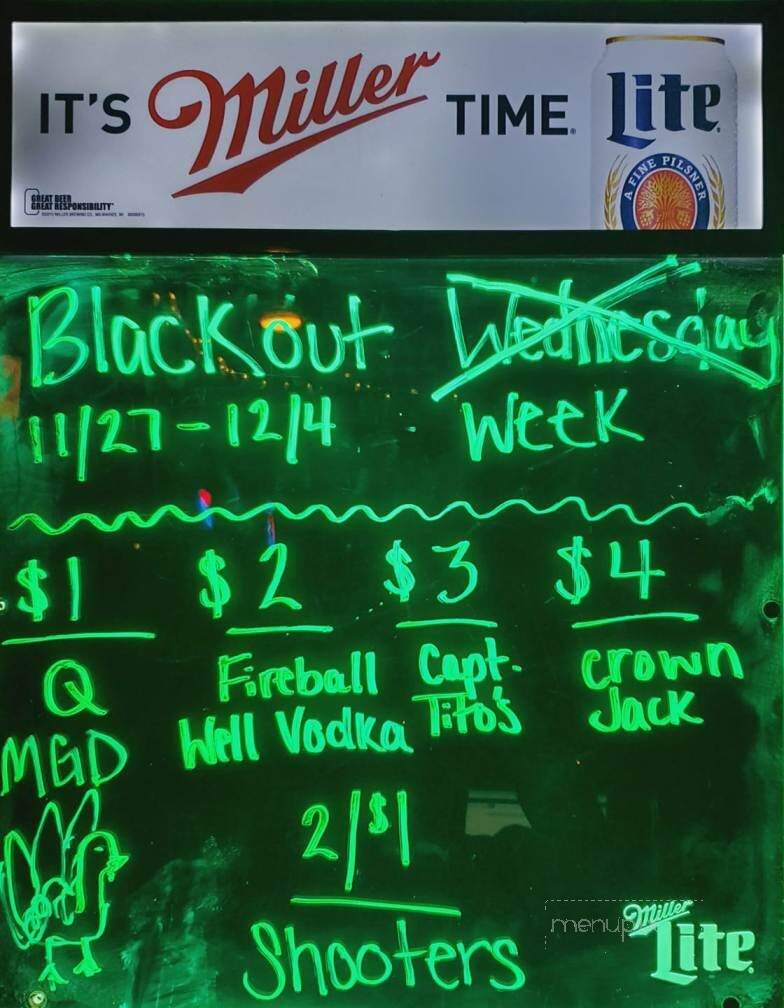 IT'S Miller TIME. Lite
A FINE PILSNER
GREAT BEER
GREAT RESPONSIBILITY
Blackout Wednesday
11/27-12/4 Week
$1 $2 $3 $4
Q Fireball Capt. Crown
MGD Well Vodka Tito's Jack
2/$1
Shooters
menup
Miller
Lite